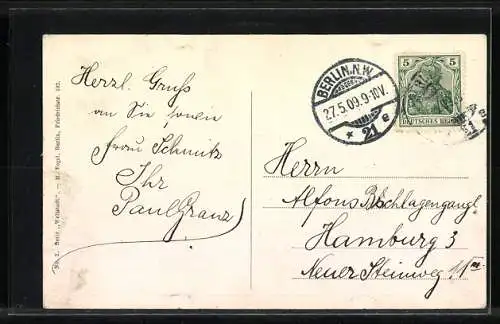 Herzl. Gruß
an Sie sowie
Frau Schmitz
Ihr
Paul Granz
No. 2. Serie „Weltstadt“. — H. Vogt, Berlin, Friedrichstr.
BERLIN. N.W.
27.5.09.9-10V.
* 21 e
5 5
DEUTSCHES REICH
Herrn
Alfons
Hamburg 3
Neuer Steinweg